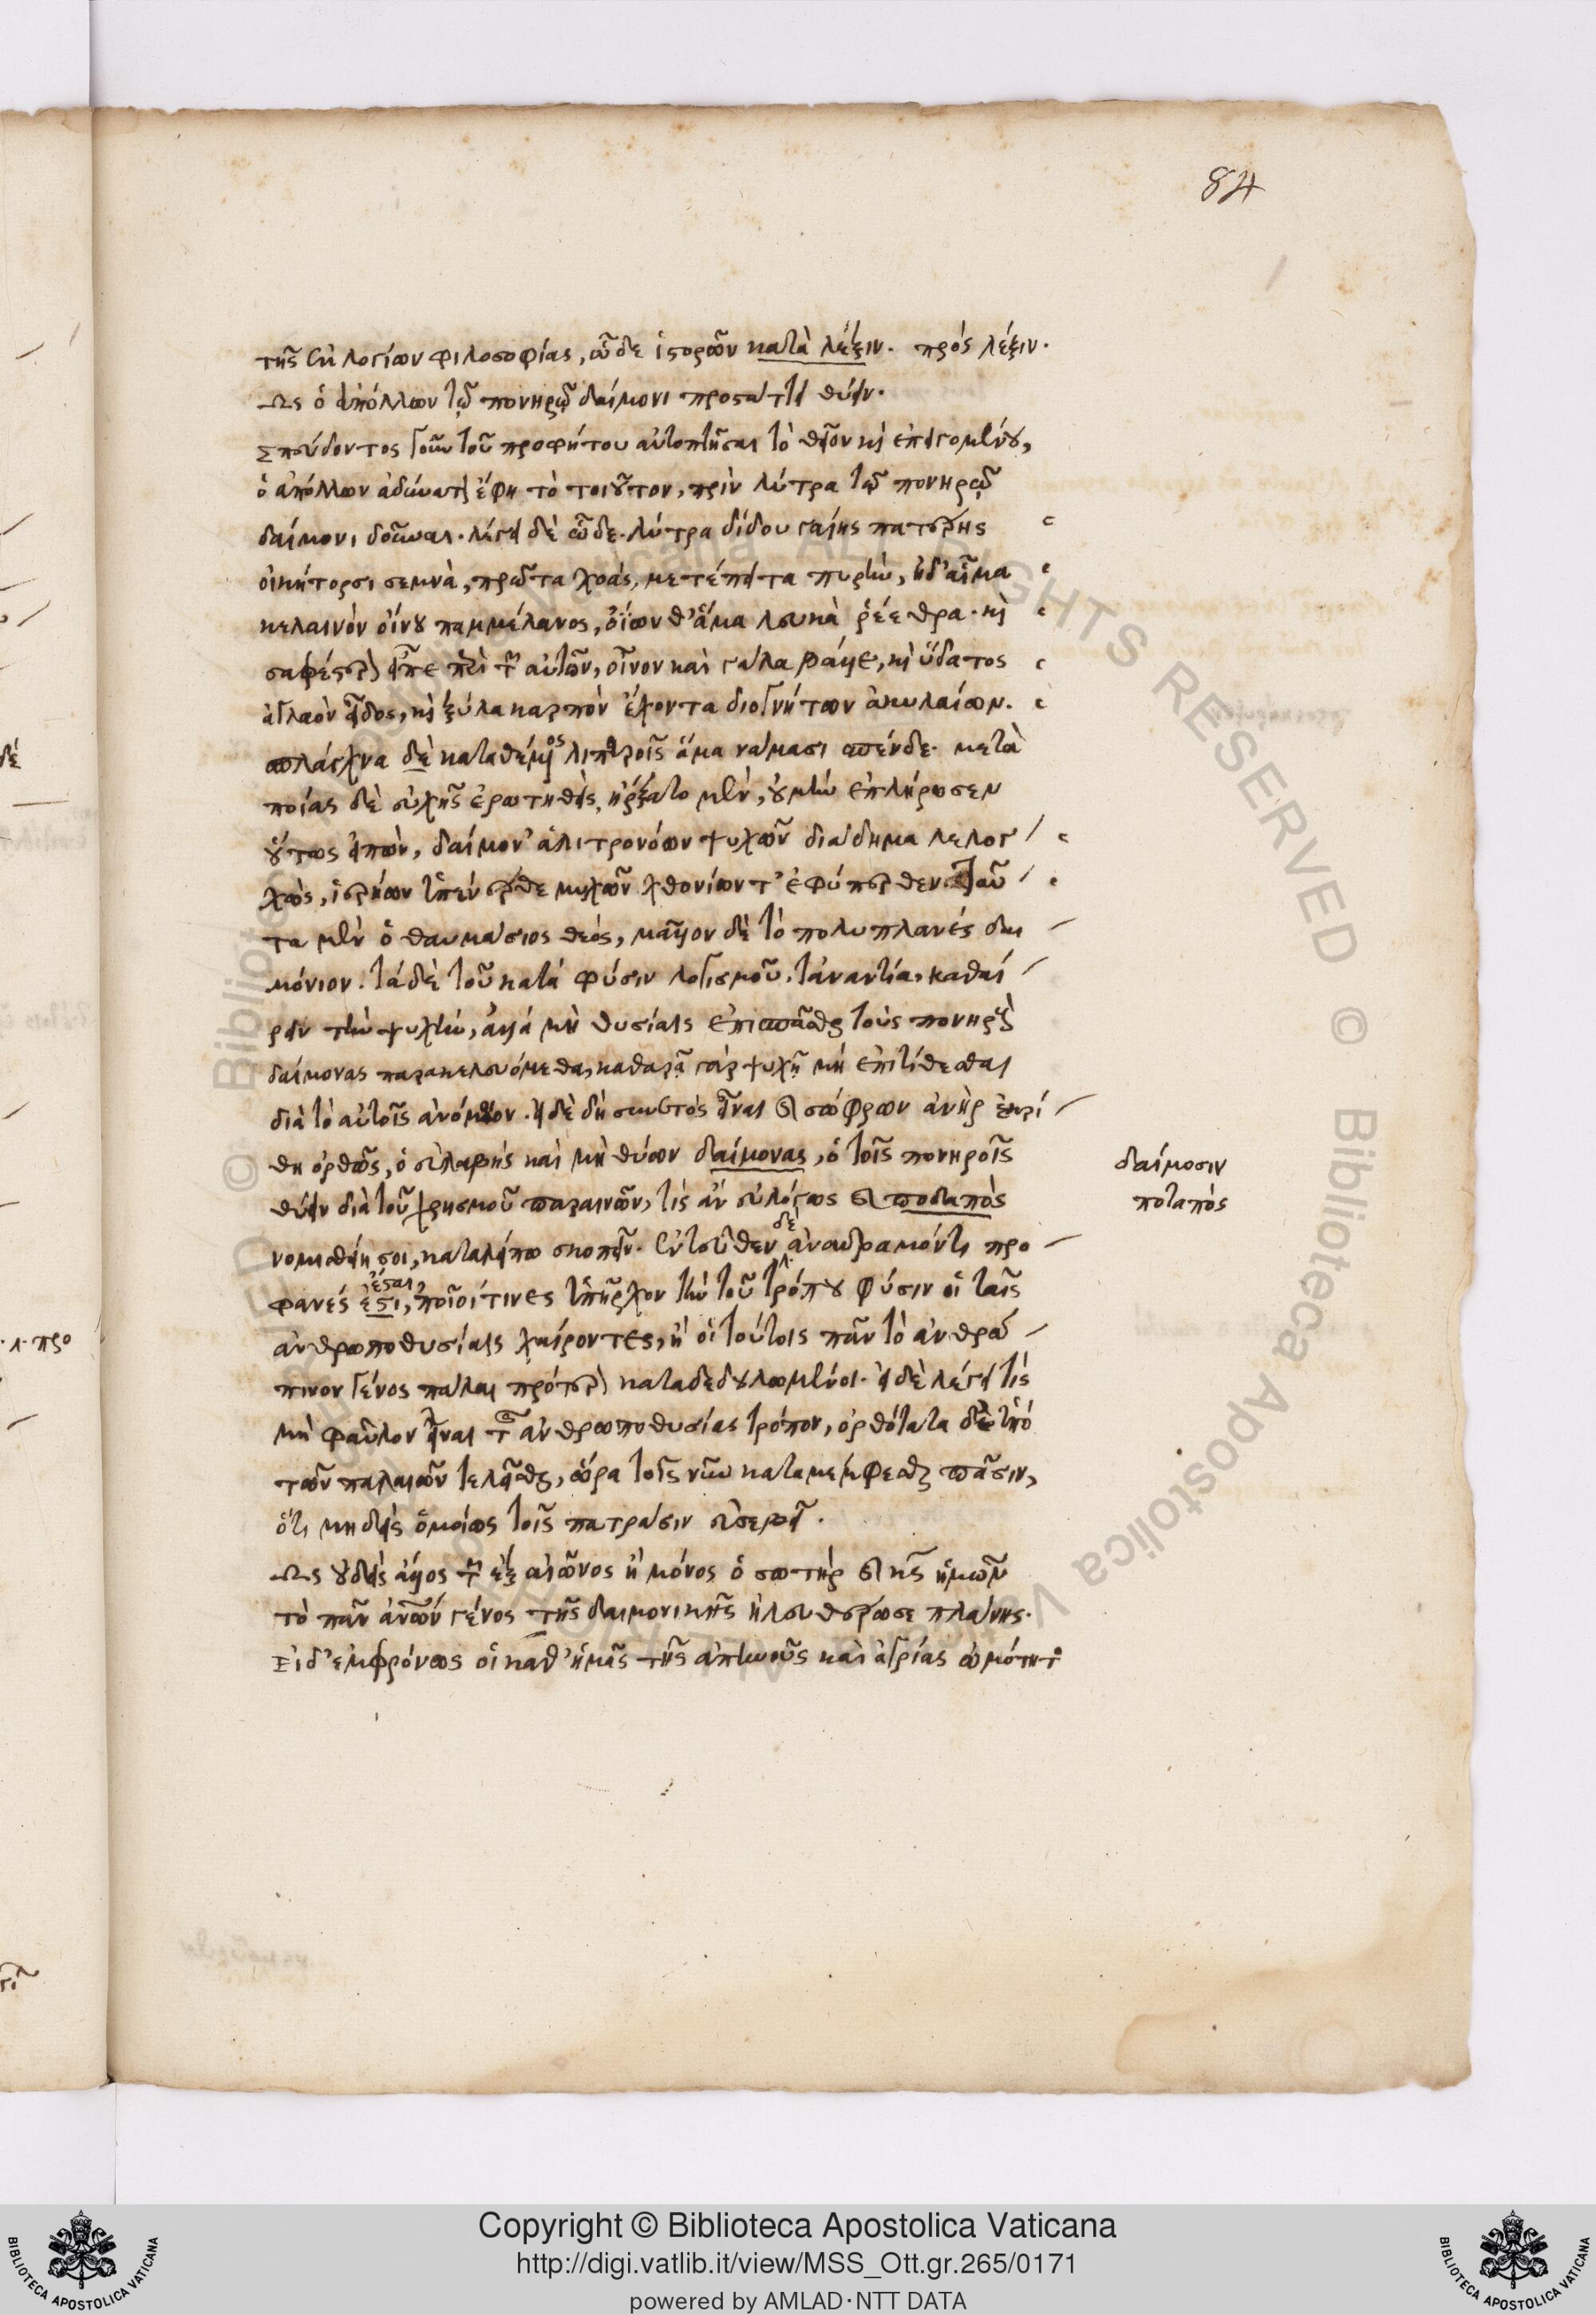 84
τῆς ἐκ λογίων φιλοσοφίας, ὧδε ἱστορῶν κατὰ λέξιν. πρὸς λέξιν.
Ὡς ὁ ἀπόλλων τῷ πονηρῷ δαίμονι προστάττει θύειν.
Σπεύδοντος γοῦν τοῦ προφήτου αὐτοπτῆσαι τὸ θεῖον καὶ ἐπειγομένου,
ὁ ἀπόλλων ἀδύνατον ἔφη τὸ τοιοῦτον, πρὶν λύτρα τῷ πονηρῷ
δαίμονι δοῦναι. λέγει δὲ ὧδε. λύτρα δίδου γαίης πατρῴης
οἰκήτορσι σεμνὰ, πρῶτα χοὰς, μετέπειτα πυρὴν, ἠδ' αἷμα
κελαινὸν οἴνου παμμέλανος, ὀΐων θ' ἅμα λευκὰ ῥέεθρα. καὶ
σαφέστερον εἶπε περὶ τῶν αὐτῶν, οἶνον καὶ γάλα βάλλε, καὶ ὕδατος
ἀγλαὸν εἶδος, καὶ ξύλα καρπὸν ἔχοντα διογνήτων ἀκυλαίων.
σπλάγχνα δὲ καταθέμενος λιπαροῖς ἅμα νάμασι σπένδε. μετὰ
ποίας δὲ εὐχῆς ἐρωτηθεὶς, ἤρξατο μὲν, οὐ μὴν ἐπλήρωσεν
οὕτως εἰπὼν, δαῖμον' ἀλιτρονόων ψυχῶν διάδημα λελογ
χὼς, ἠερίων ὑπένερθε μυχῶν χθονίων τ' ἐφύπερθεν ταῦ
τα μὲν ὁ θαυμάσιος θεός, μᾶλλον δὲ τὸ πολυπλανές δαι
μόνιον. τὰ δὲ τοῦ κατὰ φύσιν λογισμοῦ. τἀναντία, καθαί
ρειν τὴν ψυχὴν, ἀλλὰ μὴ θυσίαις ἐπισπᾶσθαι τοὺς πονηροὺς
δαίμονας παρακελευόμεθα, καθαρᾷ γὰρ ψυχῇ μὴ ἐπιτίθεσθαι
διὰ τὸ αὐτοῖς ἀνόμοιον. εἰ δὲ δὴ συνετός εἶναι καὶ σώφρων ἀνὴρ ἐκρί
θη ὀρθῶς, ὁ εὐλαβὴς καὶ μὴ θύων δαίμονας, ὁ τοῖς πονηροῖς
δαίμοσιν
θύειν διὰ τοῦ χρησμοῦ παραινῶν, τίς ἂν εὐλόγως καὶ ποδαπὸς
ποταπὸς
νομισθείη σοι, καταλείπω σκοπεῖν. ἐντεῦθεν δὲ ἀναδραμόντι προ
φανές ἐστι, ἔσται, ποῖοί τινες ὑπῆρχον τὴν τοῦ τρόπου φύσιν οἱ ταῖς
ἀνθρωποθυσίαις χαίροντες, ἢ οἱ τούτοις πᾶν τὸ ἀνθρώ
πινον γένος πάλαι πρότερον καταδεδουλωμένοι. εἰ δὲ λέγει τίς
μὴ φαῦλον εἶναι τὸν ἀνθρωποθυσίας τρόπον, ὀρθότατα δὲ ὑπὸ
τῶν παλαιῶν τελεῖσθαι, ὥρα τοῖς νῦν καταμέμφεσθαι πᾶσιν,
ὅτι μηδεὶς ὁμοίως τοῖς πατράσιν εὐσεβεῖ.
Ὡς οὐδεὶς ἄλλος τῶν ἐξ αἰῶνος ἢ μόνος ὁ σωτὴρ καὶ κς ἡμῶν
τὸ πᾶν ἀνων γένος τῆς δαιμονικῆς ἠλευθέρωσε πλάνης.
Εἰ δ' ἐμφρόνως οἱ καθ' ἡμᾶς τῆς ἀπηνοῦς καὶ ἀγρίας ὠμότητος
Copyright © Biblioteca Apostolica Vaticana
http://digi.vatlib.it/view/MSS_Ott.gr.265/0171
powered by AMLAD·NTT DATA
BIBLIOTECA APOSTOLICA VATICANA
BIBLIOTECA APOSTOLICA VATICANA